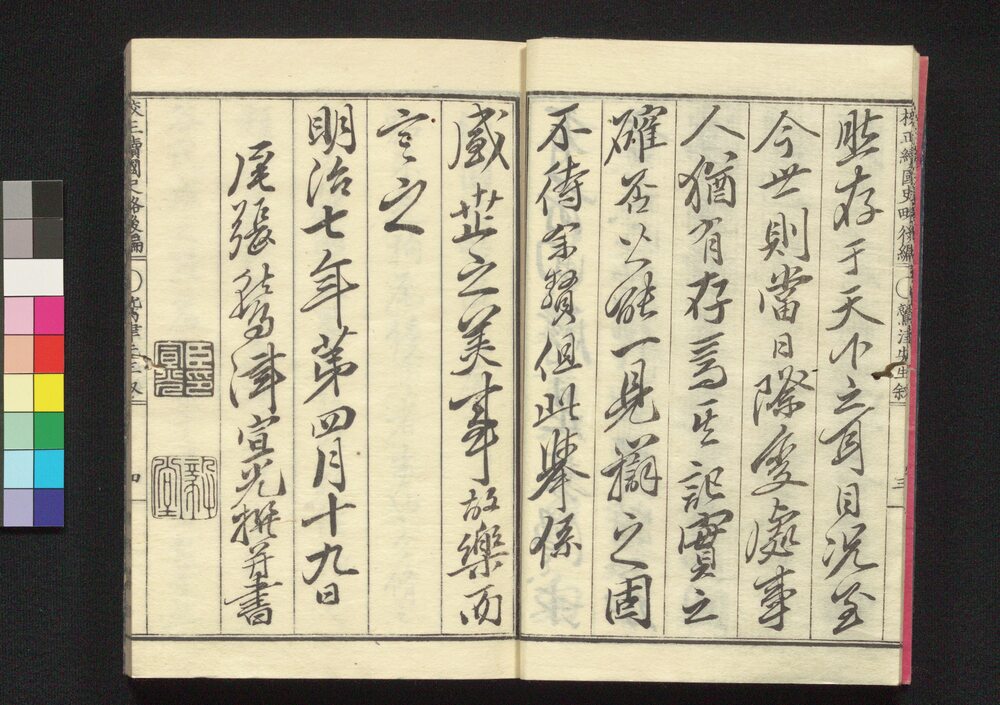 校正續國史略後編 鷲津先生敘 三
照存于天下之耳目況至
今世則當日際變處事
人猶有存焉其記實之
確否公能一見辯之固
不待余贅但此舉係
盛世之美事故樂而
言之
明治七年第四月十九日
尾張鷲津宣光撰并書
臣印宣光
毅堂
校正續國史略後編 鷲津先生敘 四